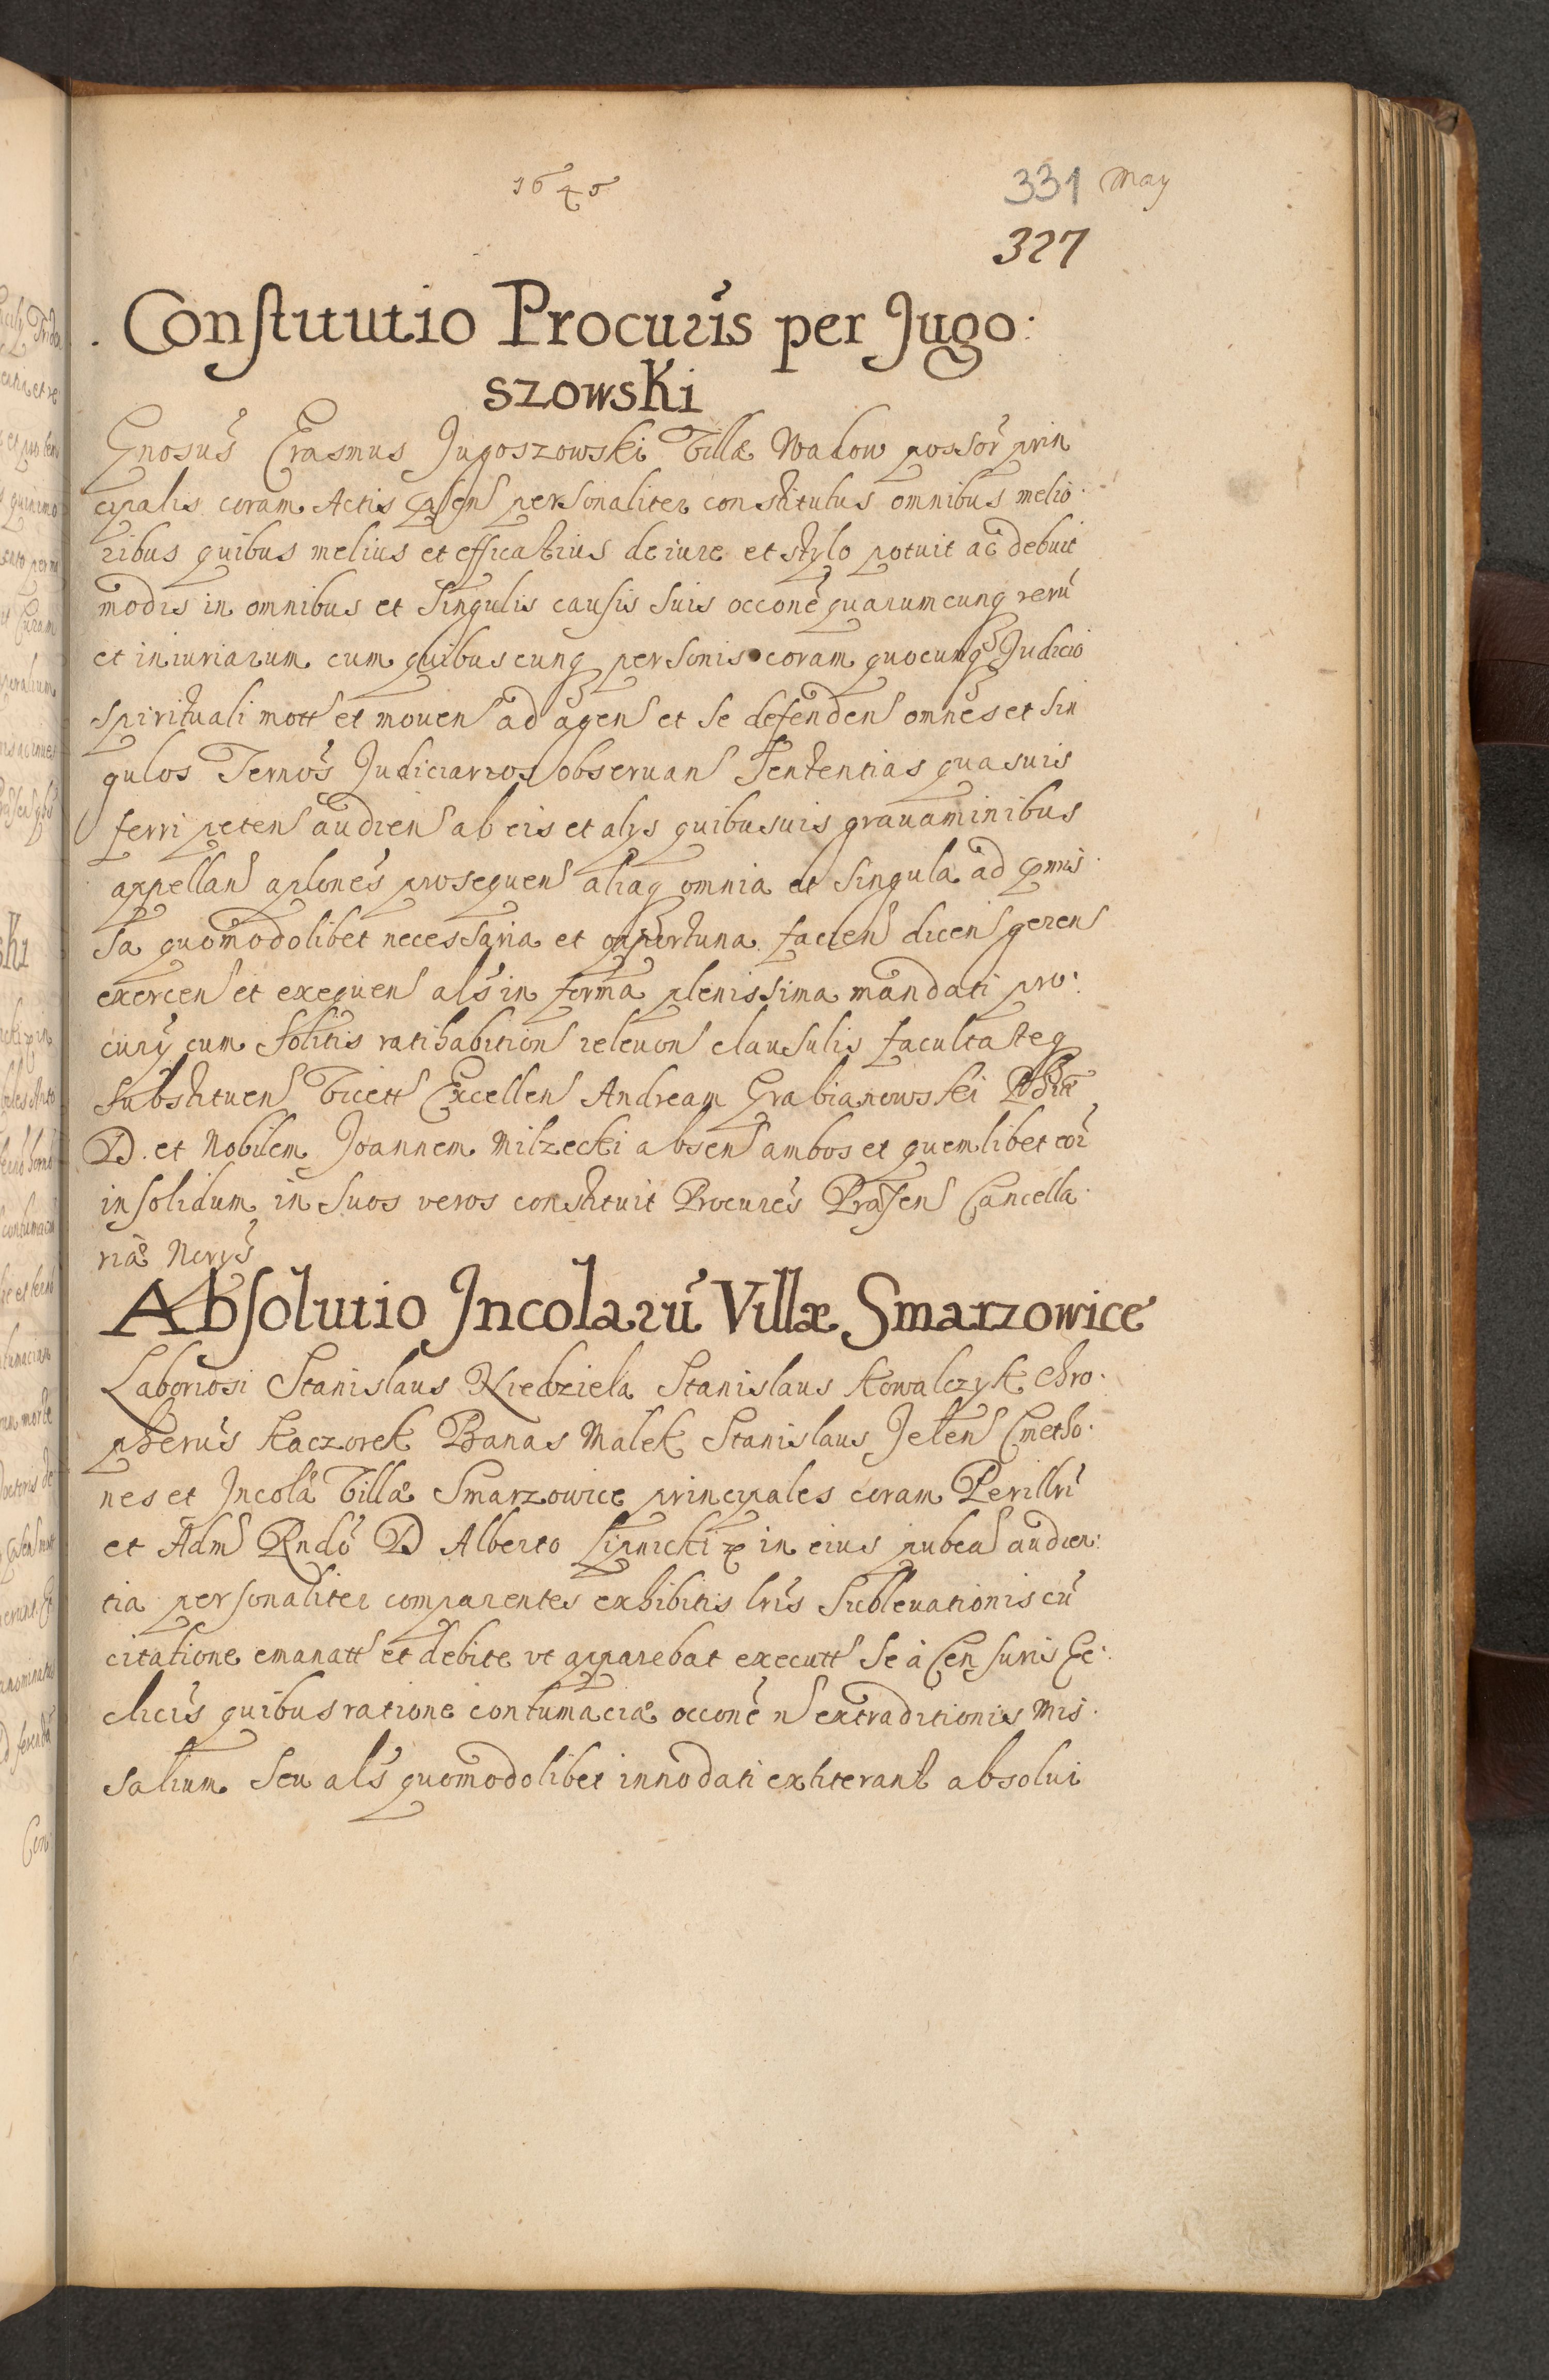 1645
331 May
327
Constitutio Procuris per Jugo:
szowski
Gnosus Erasmus Jugoszowski Villæ Wadow possor prin
cipalis coram Actis præsen personaliter constitutus omnibus melio
ribus quibus melius et efficatius de iure et stylo potuit ac debuit
modis in omnibus et singulis causis suis occone quarumcunq rerū
et iniuriarum cum quibuscunq personis coram quocunq Judicio
spirituali mott et mouen ad agen et se defenden omnes et sin
gulos Ternos Judiciarios obseruan Sententias quasuis
ferri peten audien ab eis et alys quibusuis grauaminibus
appellan aplones prosequen aliaq omnia et singula ad præmis
sa quomodolibet necessaria et opportuna facien dicen geren
exercen et exequen als in forma plenissima mandati pro:
cury cum solitis ratihabition releuon clausulis facultateq
substituen Vicett Excellen Andream Grabianowski
D. et Nobilem Joannem Milzecki absen ambos et quemlibet eor
in solidum in suos veros constituit Procures Præsen Cancella
riæ Norys
Absolutio Incolarū Villæ Smarzowice
Laboriosi Stanislaus Niedziela Stanislaus Kowalczyk Chro
pherus Kaczorek Banas Malek Stanislaus Jelen Cmetho
nes et Incolæ Villæ Smarzowice principales coram Perillri
et Adm Rndo D Alberto Lipnicki in eius pubca audien:
tia personaliter comparentes exhibitis lris Subleuationis cū
citatione emanatt et debite vt apparebat executt se à Censuris Ec:
clicis quibus ratione contumaciæ occone n extraditionis Mis
salium seu als quomodolibet innodati extiterant absolui